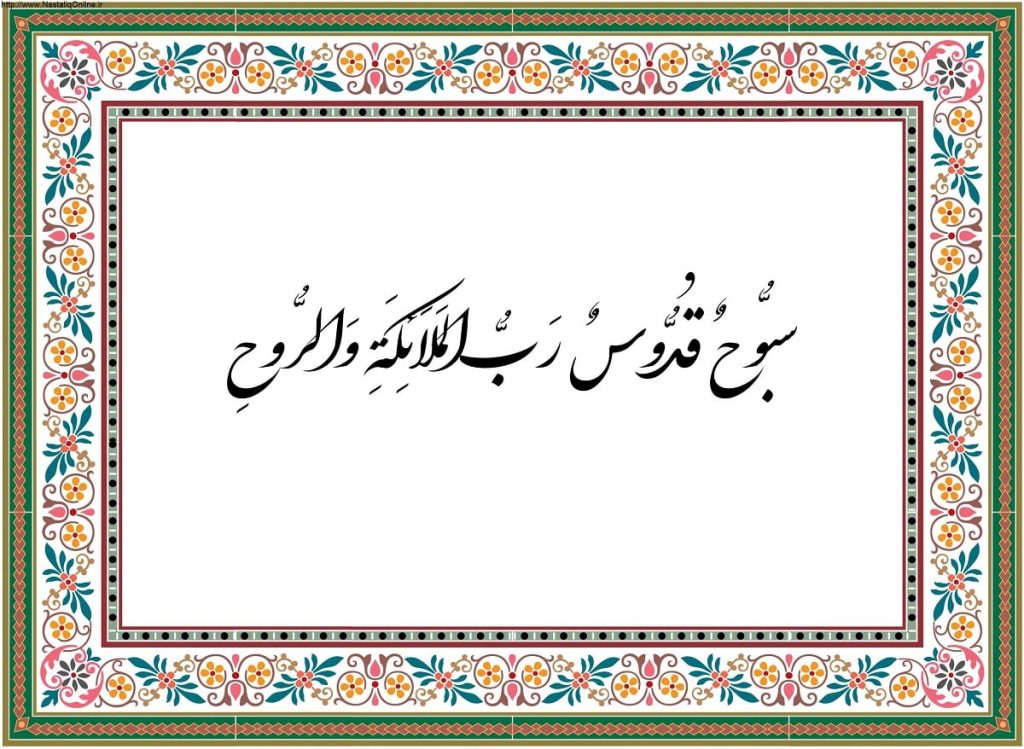 http://www.NastaliqOnline.ir
سبُّوحٌ قُدُّوسٌ رَبُّ المَلَائِكَةِ وَالرُّوحِ